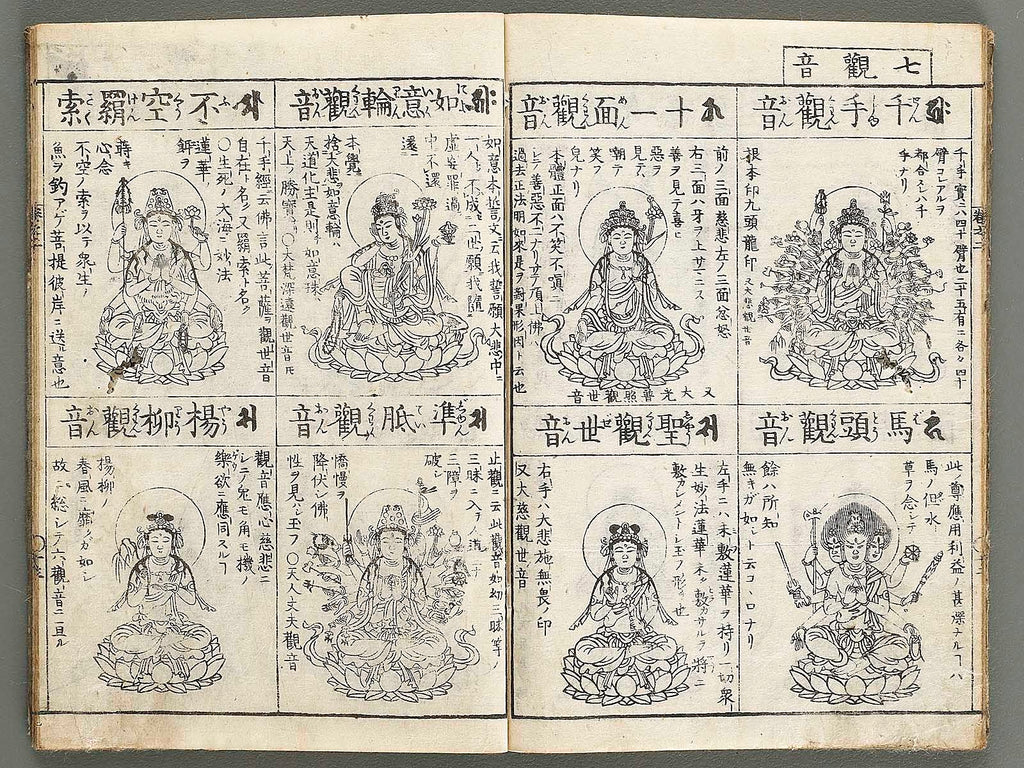 七觀音
千手觀音
千手ト實ハ四十臂也二十五有ニ各々四十
臂コレアルヲ
都合スレハ千
手ナリ
根本印九頭龍印
又大悲觀世音
十一面觀音
前ノ三面慈悲左ノ三面忿怒
右三面ハ牙ヲ上サニス
善ヲ見テ喜ヒ
惡ヲ
見テ
嘲テ
笑フ
皃ナリ
本體正面ハ不笑不嗔ニ
シテ善惡不二ナリサテ頂上ノ佛ハ
過去正法明如來是ヲ爲果形因ト云也
又大光普照觀世音
馬頭觀音
此ノ尊應用利益ノ甚深ナルヿハ
馬ノ但水
草ヲ念シテ
餘ハ所知
無キガ如シト云コヽロナリ
聖觀世音
左手ニハ未敷蓮華ヲ持リ一切衆
生妙法蓮華未敷カサルヲ將ニ
敷カシメントシ玉フノ形也
右手ハ大悲施無畏ノ印
又大慈觀世音
如意輪觀音
如意本誓文云我誓願大悲中ニ
一人トノ不成二世ノ願我隨
虚妄罪過
中不還
本覺
捨大悲如意輪ハ
天道化主是則チ如意珠
天上ノ勝寶○大梵深遠觀世音氏
不空羂索
千手經云佛ノ言此ノ菩薩ヲ觀世音
自在ト名ク又羂索ト名ク
○生死ノ大海ニ妙法
蓮華ノ
餌ヲ
蒔キ
心念
不空ノ索ヲ以テ衆生ノ
魚ヲ釣アゲ菩提彼岸ニ送ル意也
準胝觀音
止觀ニ云此觀音如幻三昧等ノ
三昧ニ入テ人道ノ
三障ヲ
破シ
憍慢ヲ
降伏シ佛
性ヲ見シ玉フ○天人丈夫觀音
楊柳觀音
觀音應心慈悲ニ
シテ兔モ角モ機ノ
樂欲ニ應同スルヿ
揚柳ノ
春風ニ靡クカ如シ
故ニ總シテ六觀音ニ亘ル